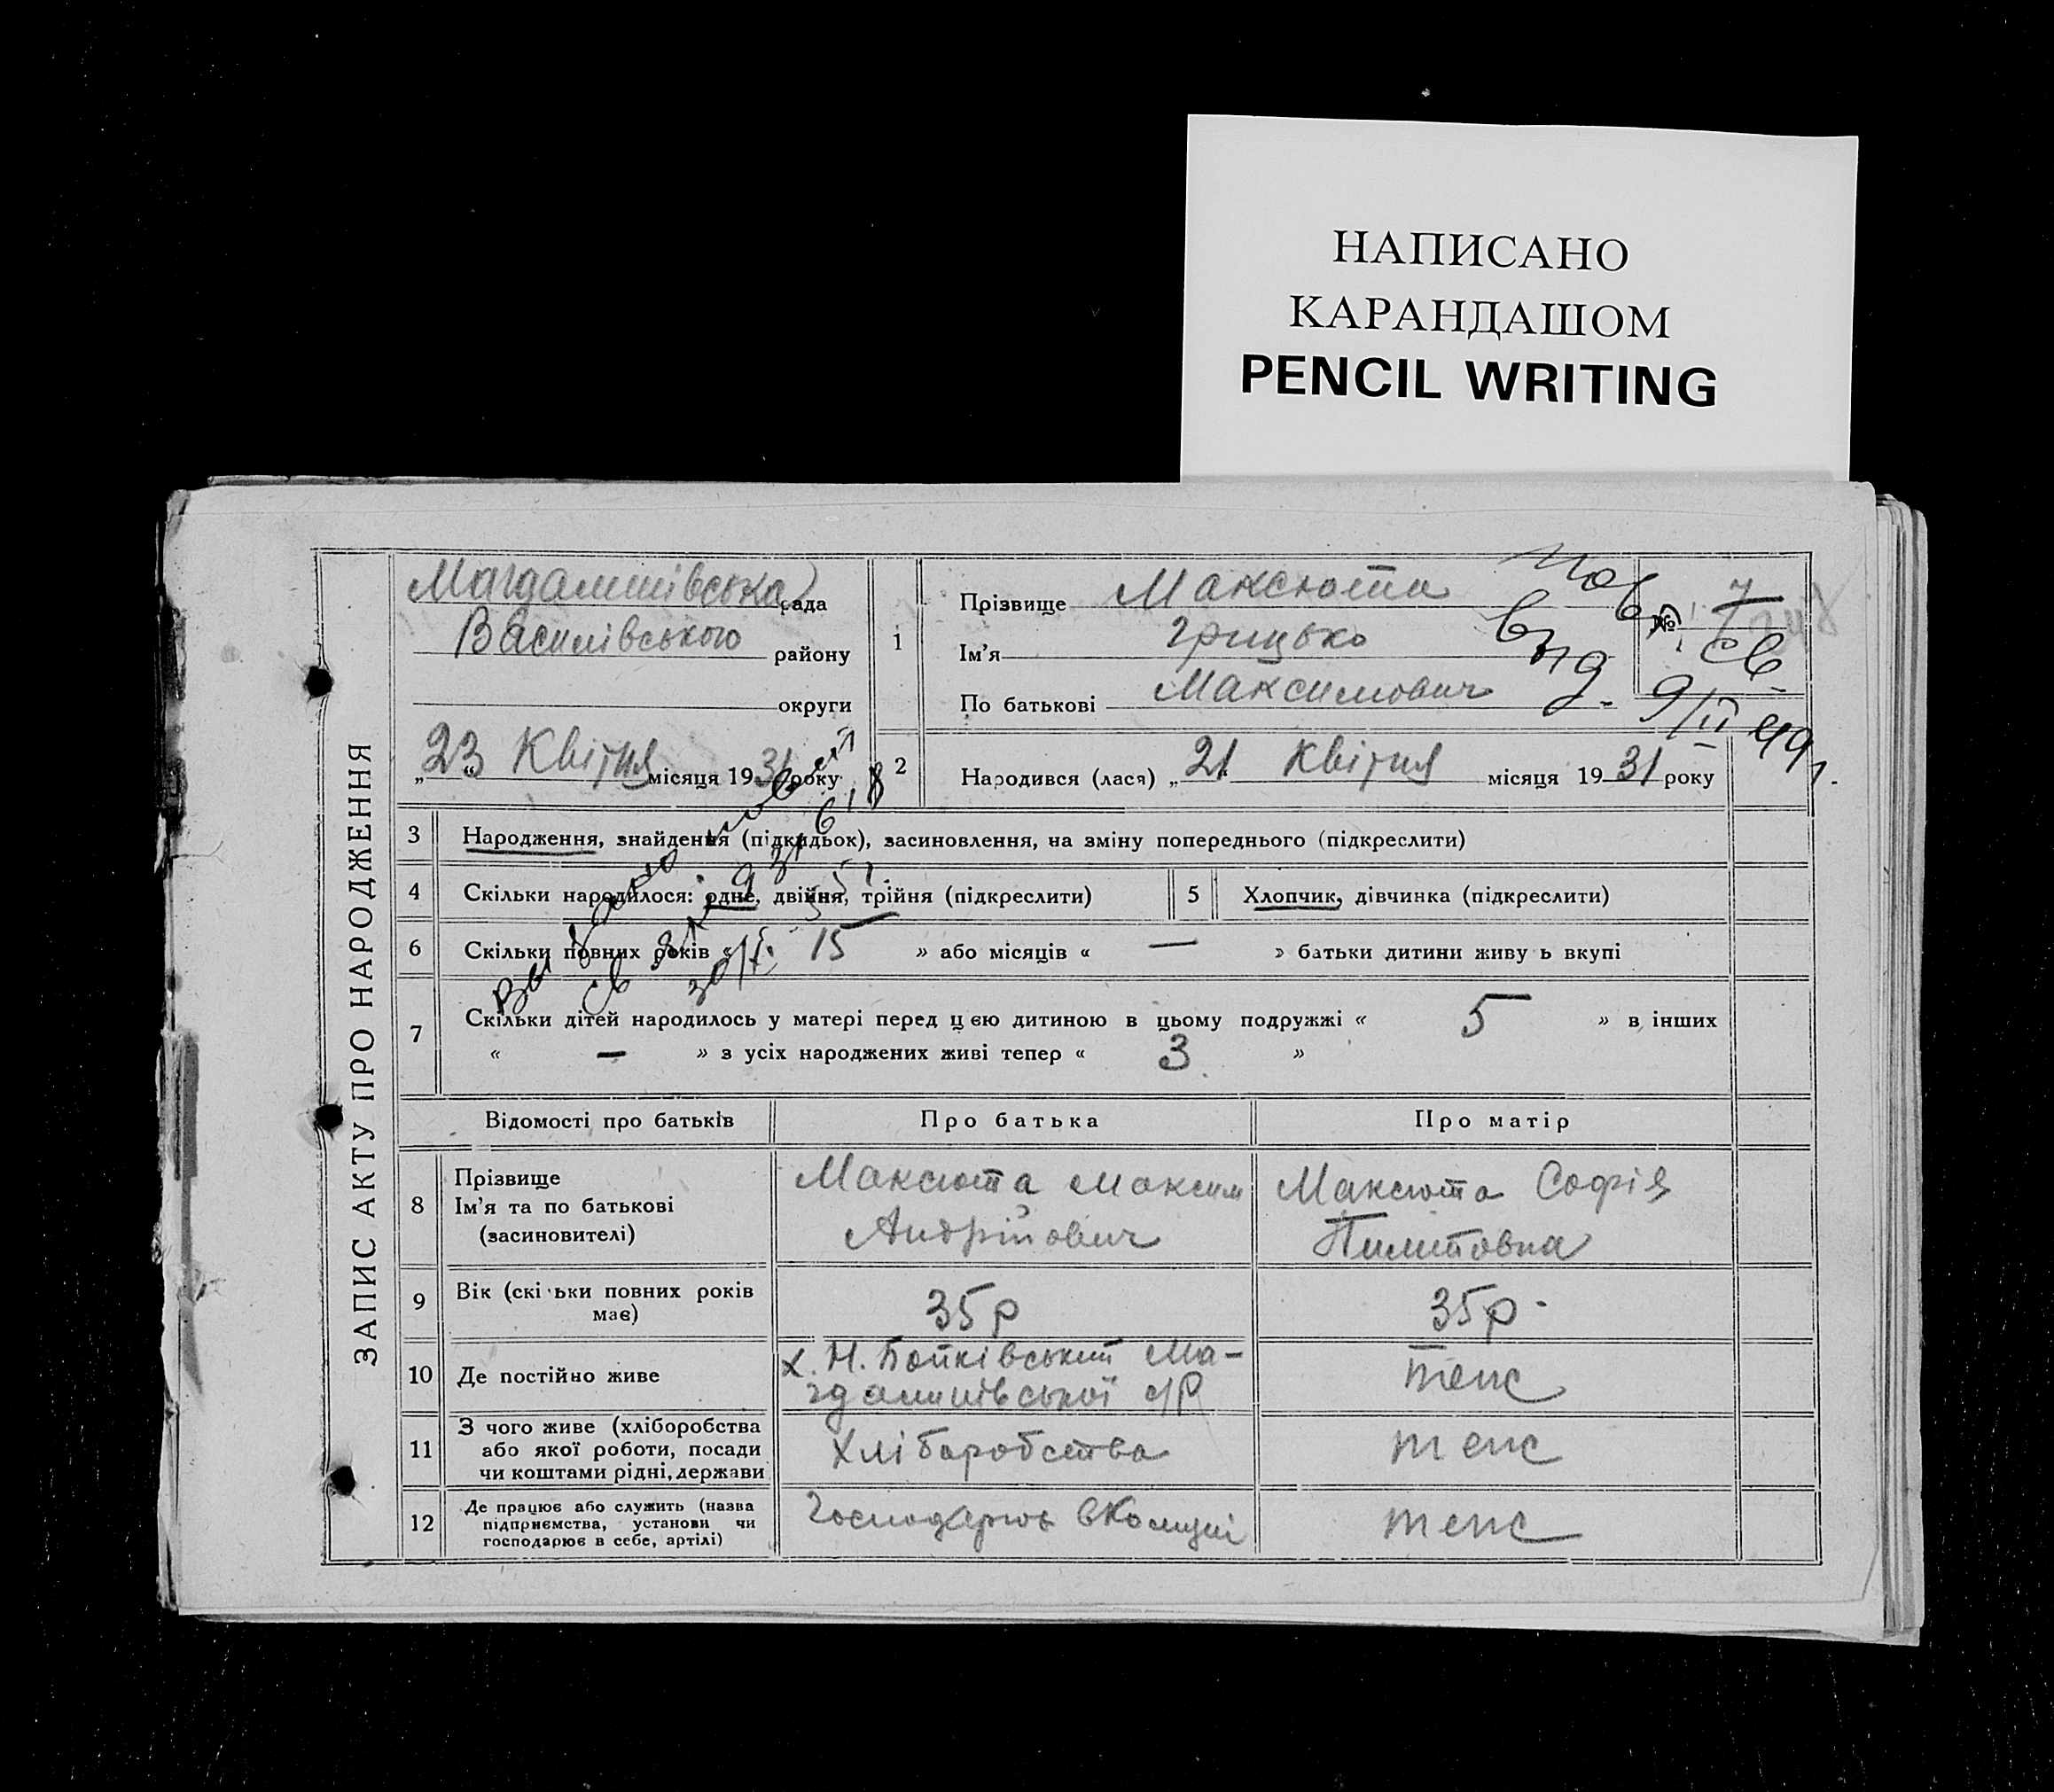 НАПИСАНО
КАРАНДАШОМ
PENCIL WRITING
ЗАПИС АКТУ ПРО НАРОДЖЕННЯ
Магдалинівська рада
Василівського району
округи
„23“ Квітня місяця 1931 року
1
Прізвище Максюта
Ім'я Грицько
По батькові Максимович
№ 7
Пов. св.
выд. 9/II 49 г.
2
Народився (лася) „21“ Квітня місяця 1931 року
3 Народження, знайдення (підкидьок), засиновлення, на зміну попереднього (підкреслити)
4 Скільки народилося: одне, двійня, трійня (підкреслити)
5 Хлопчик, дівчинка (підкреслити)
6 Скільки повних років « 15 » або місяців « — » батьки дитини живу ь вкупі
7 Скільки дітей народилось у матері перед цією дитиною в цьому подружжі « 5 » в інших
« — » з усіх народжених живі тепер « 3 »
Відомості про батьків Про батька Про матір
8 Прізвище
Ім'я та по батькові
(засиновителі)
Максюта Максим
Андрійович
Максюта Софія
Пилиповна
9 Вік (скі ьки повних років
має)
35 р
35 р.
10 Де постійно живе
х. Н. Бойківський Ма-
гдалинівської с/Р
теж
11 З чого живе (хліборобства
або якої роботи, посади
чи коштами рідні, держави
Хліборобства
теж
12 Де працює або служить (назва
підприємства, установи чи
господарює в себе, артілі)
Господарює
теж